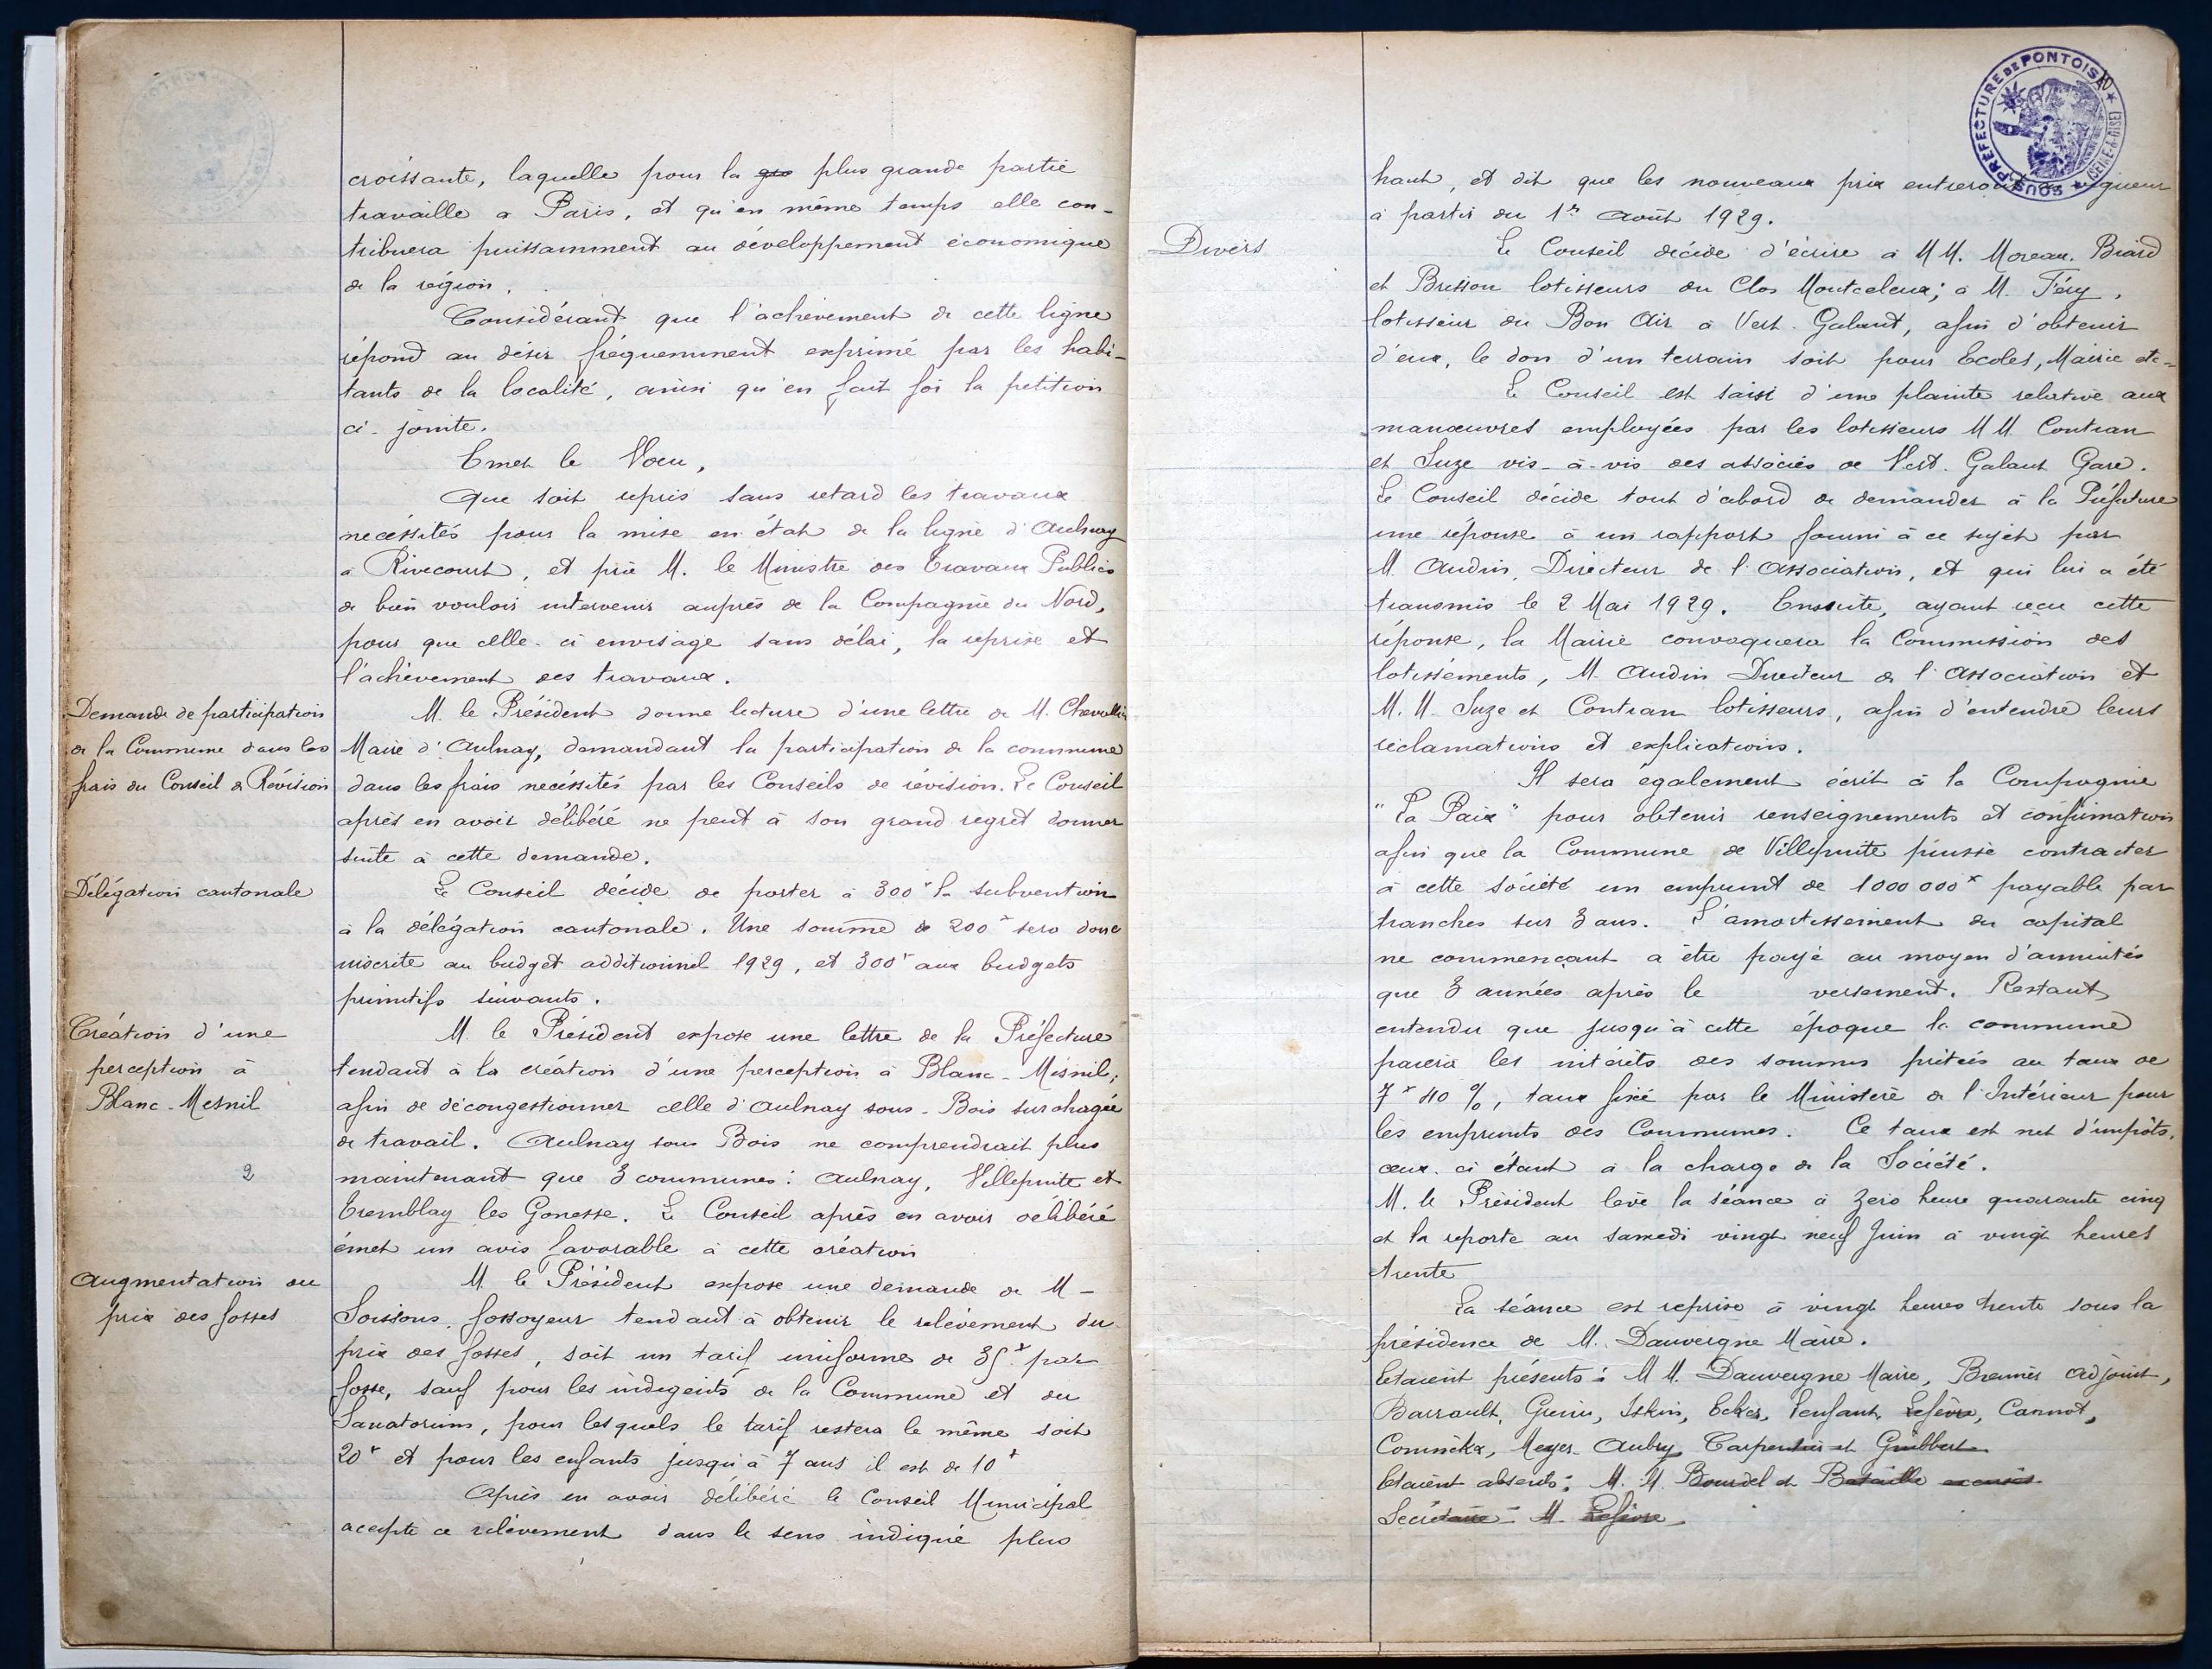 croissante, laquelle pour la gra plus grande partie
travaille a Paris, et qu'en même temps elle con-
tribuera puissamment au développement économique
de la région.
Considérant que l'achèvement de cette ligne
répond au désir fréquemment exprimé par les habi-
tants de la localité, ainsi qu'en fait foi la petition
ci-jointe.
Emet le Voeu,
Que soit repris sans retard les travaux
necéssités pour la mise en état de la ligne d'Aulnay
à Rivecourt, et prie M. le Ministre des Travaux Publics
de bien vouloir intervenir auprès de la Compagnie du Nord,
pour que celle-ci envisage sans délai, la reprise et
l'achèvement des travaux.
Demande de participation
de la Commune dans les
frais du Conseil de Révision
M. le Président donne lecture d'une lettre de M.
Maire d'Aulnay, demandant la participation de la commune
dans les frais necéssités par les Conseils de révision. Le Conseil
après en avoir délibéré ne peut à son grand regret donner
suite à cette demande.
Délégation cantonale
Le Conseil décide de porter à 300f la subvention
à la délégation cantonale. Une somme de 200f sera donc
inscrite au budget additionnel 1929, et 300f aux budgets
primitifs suivants.
Création d'une
perception à
Blanc-Mesnil
2
M. le Président expose une lettre de la Préfecture
tendant à la création d'une perception à Blanc-Mésnil,
afin de décongestionner celle d'Aulnay sous-Bois surchagée
de travail. Aulnay sous Bois ne comprendrait plus
maintenant que 3 communes: Aulnay, Villepinte et
Tremblay les Gonesse. Le Conseil après en avoir délibéré
émet un avis favorable à cette création
Augmentation du
prix des fosses
M. le Président expose une demande de M-
Soissons, fossoyeur tendant à obtenir le relèvement du
prix des fosses, soit un tarif uniforme de 35f par
fosse, sauf pour les indigents de la Commune et du
Sanatorium, pour lesquels le tarif restera le même soit
20f et pour les enfants jusqu'à 7 ans il est de 10f
Après en avoir délibéré le Conseil Municipal
accepte ce relèvement dans le sens indiqué plus
SOUS-PRÉFECTURE DE PONTOISE
SEINE-&-OISE
haut, et dit que les nouveaux prix entreront en vigueur
à partir du 1er Août 1929.
Divers
Le Conseil décide d'écrire à MM. Moreau. Biard
et Brisson lotisseurs du Clos Montceleux; à M. Féry,
lotisseur du Bon Air à Vert-Galant, afin d'obtenir
d'eux, le don d'un terrain soit pour Ecoles, Mairie etc=
Le Conseil est saisi d'une plainte relative aux
manœuvres employées par les lotisseurs MM. Contran
et Suze vis-à-vis des associés de Vert-Galant Gare.
Le Conseil décide tout d'abord de demander à la Préfecture
une réponse à un rapport fourni à ce sujet par
M. Audin, Directeur de l'Association, et qui lui a été
transmis le 2 Mai 1929. Ensuite, ayant reçu cette
réponse, la Mairie convoquera la Commission des
lotissements, M. Audin Directeur de l'Association et
M.M. Suze et Contran lotisseurs, afin d'entendre leurs
réclamations et explications.
Il sera également écrit à la Compagnie
"La Paix" pour obtenir renseignements et confirmation
afin que la Commune de Villepinte puisse contracter
à cette société un emprunt de 1000 000f payable par
tranches sur 3 ans. L'amortissement du capital
ne commençant à être payé au moyen d'annuités
que 3 années après le versement. Restant
entendu que jusqu'à cette époque la commune
paiera les intérêts des sommes prêtées au taux de
7f 40 %, taux fixé par le Ministère de l'Intérieur pour
les emprunts des Communes. Ce taux est net d'impôts,
ceux-ci étant à la charge de la Société.
M. le Président lève la séance à zéro heure quarante cinq
et la reporte au samedi vingt neuf Juin à vingt heures
trente
La séance est reprise à vingt heures trente sous la
présidence de M. Dauvergne Maire.
Etaient présents: MM. Dauvergne Maire, adjoint,
Barrault, Iskin, Lenfant, Lefèvre, Cannot,
Meyer Aubry, Carpentier et Guilbert
Etaient absents: M.M. Bourdel et Bataille excusés.
Secrétaire = M. Lefèvre